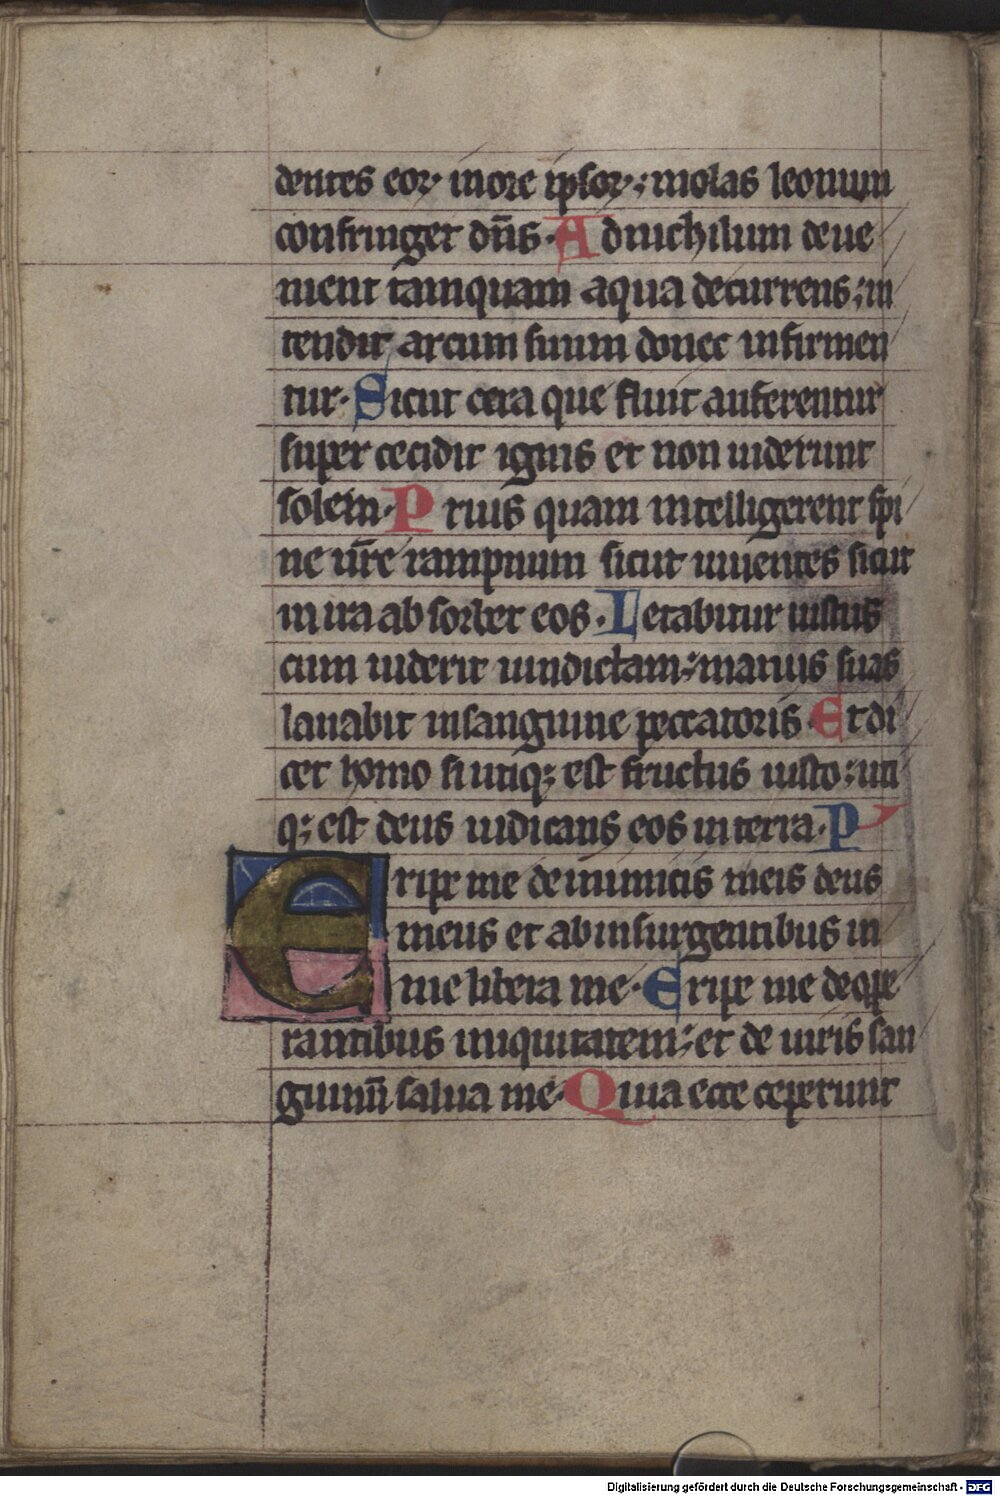 dentes eor· inore ipsor·: molas leonum
confringet dn̄s· Adnichilum deue
nient tamquam aqua decurrens: in
tendit arcum suum donec infirmen
tur· Sicut cera que fluit auferentur
super cecidit ignis et non uiderunt
solem· Prius quam intelligerent spi
ne ur̄e rampnum sicut uiuentes sicut
in ira ab sorbet eos· Letabitur iustus
cum uiderit uindictam: manus suas
lauabit insanguine peccatoris· Et di
cet homo si utiq; est fructus iusto: uti
q; est deus iudicans eos interra· P
Eripe me deinimicis meis deus
meus et abinsurgentibus in
me libera me· Eripe me deope
rantibus iniquitatem: et de uiris san
guinū salua me· Quia ecce ceperunt
Digitalisierung gefördert durch die Deutsche Forschungsgemeinschaft - DFG